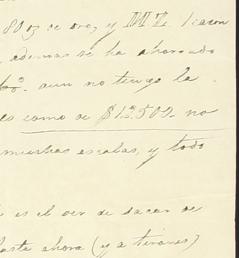 80 oz de oro, y M Z. hacen
ademas se ha ahorrado
aun no tengo la
es como de $12.500. no
muchas escalas, y todo
es el oir de sacar de
hasta ahora (y a tirones)